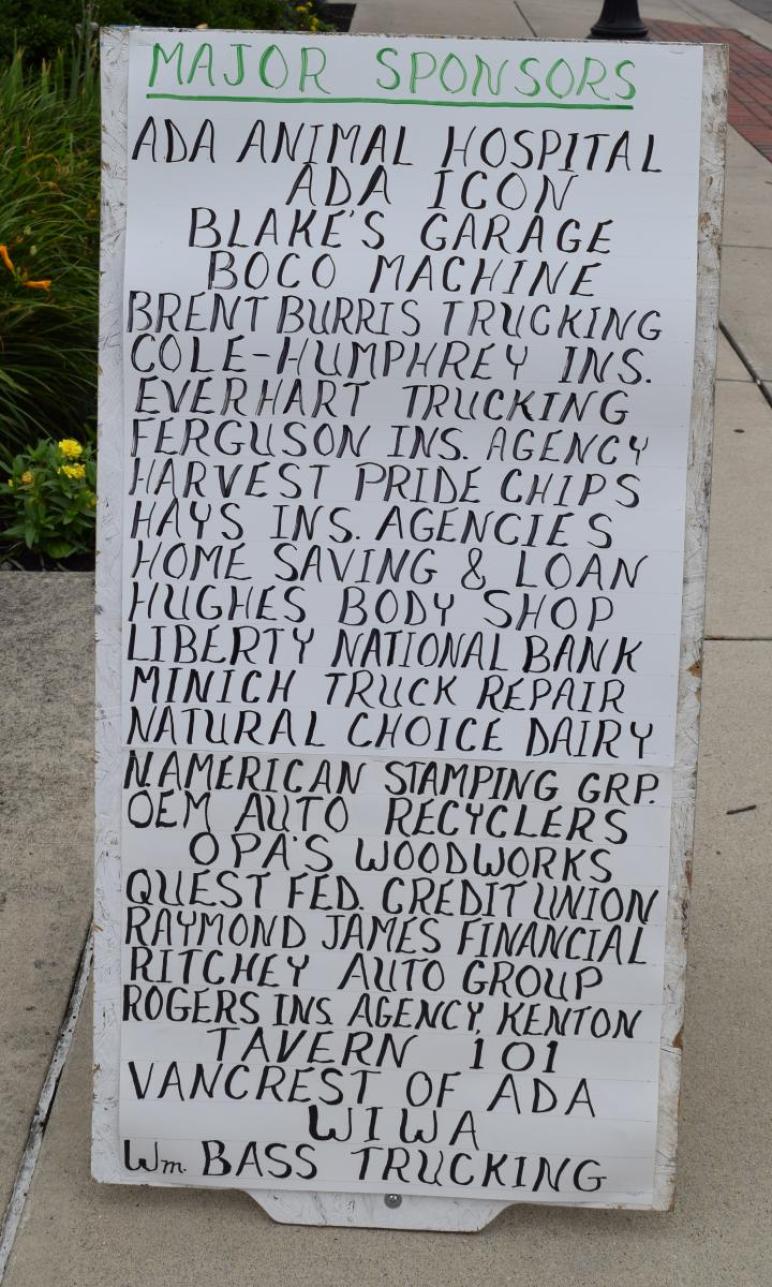 MAJOR SPONSORS
ADA ANIMAL HOSPITAL
ADA ICON
BLAKE'S GARAGE
BOCO MACHINE
BRENT BURRIS TRUCKING
COLE-HUMPHREY INS.
EVERHART TRUCKING
FERGUSON INS. AGENCY
HARVEST PRIDE CHIPS
HAYS INS. AGENCIES
HOME SAVING & LOAN
HUGHES BODY SHOP
LIBERTY NATIONAL BANK
MINICH TRUCK REPAIR
NATURAL CHOICE DAIRY
N.AMERICAN STAMPING GRP.
OEM AUTO RECYCLERS
OPA'S WOODWORKS
QUEST FED. CREDIT UNION
RAYMOND JAMES FINANCIAL
RITCHEY AUTO GROUP
ROGERS INS. AGENCY, KENTON
TAVERN 101
VANCREST OF ADA
WIWA
Wm. BASS TRUCKING